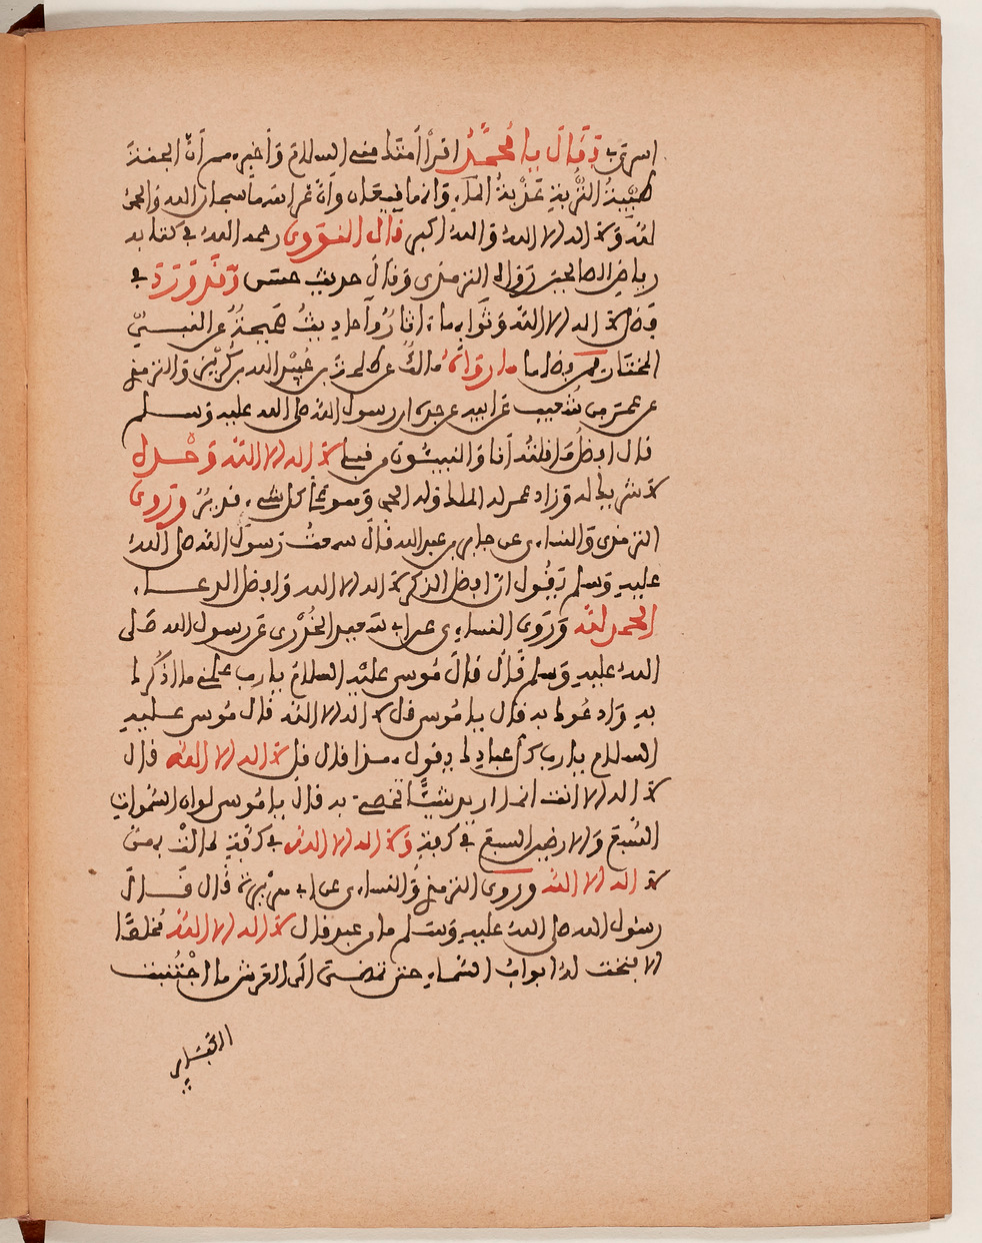 اسري بي فقال يا محمد اقرأ امتك مني السلام وأخبرهم أن الجنة
طيبة التربة عذبة الماء وانها قيعان وأن غراسها سبحان الله والحمد
لله ولا اله الا الله والله اكبر قال النووي رحمه الله في كتابه
رياض الصالحين رواه الترمذي وقال حديث حسن وقد ورد في
فضل لا اله الا الله وثوابها ءاثار وأحاديث صحيحة عن النبي
المختار فمن فضلها ما رواه مالك عن طلحة بن عبيد الله بن كريز والترمذي
عن عمرو بن شعيب عن ابيه عن جده ان رسول الله صلى الله عليه وسلم
قال افضل ما قلته أنا والنبيئون من قبلي لا اله الا الله وحده
لا شريك له وزاد عمر له الملك وله الحمد وهو على كل شيء قدير وروى
الترمذي والنساءي عن جابر بن عبد الله قال سمعت رسول الله صلى الله
عليه وسلم يقول ان افضل الذكر لا اله الا الله وافضل الدعاء
الحمد لله وروى النساءي عن ابي سعيد الخدري عن رسول الله صلى
الله عليه وسلم قال قال موسى عليه السلام يا رب علمني ما اذكرك
به وادعوك به فقال يا موسى قل لا اله الا الله قال موسى عليه
السلام يا رب كل عبادك يقول هذا قال قل لا اله الا الله قال
لا اله الا انت انما اريد شيئا تخصني به قال يا موسى لو ان السموات
السبع والارضين السبع في كفة ولا اله الا الله في كفة لمالت بهن
لا اله الا الله وروى الترمذي والنساءي عن ابي هريرة قال قال
رسول الله صلى الله عليه وسلم ما من عبد قال لا اله الا الله مخلصا
الا فتحت له ابواب السماء حتى تفضي الى العرش ما اجتنبت
الكبائر